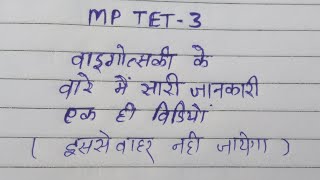 MP TET-3
वाइगोत्सकी के
वारे में सारी जानकारी
एक ही विडियों
( इससे वाहर नही जायेगा )